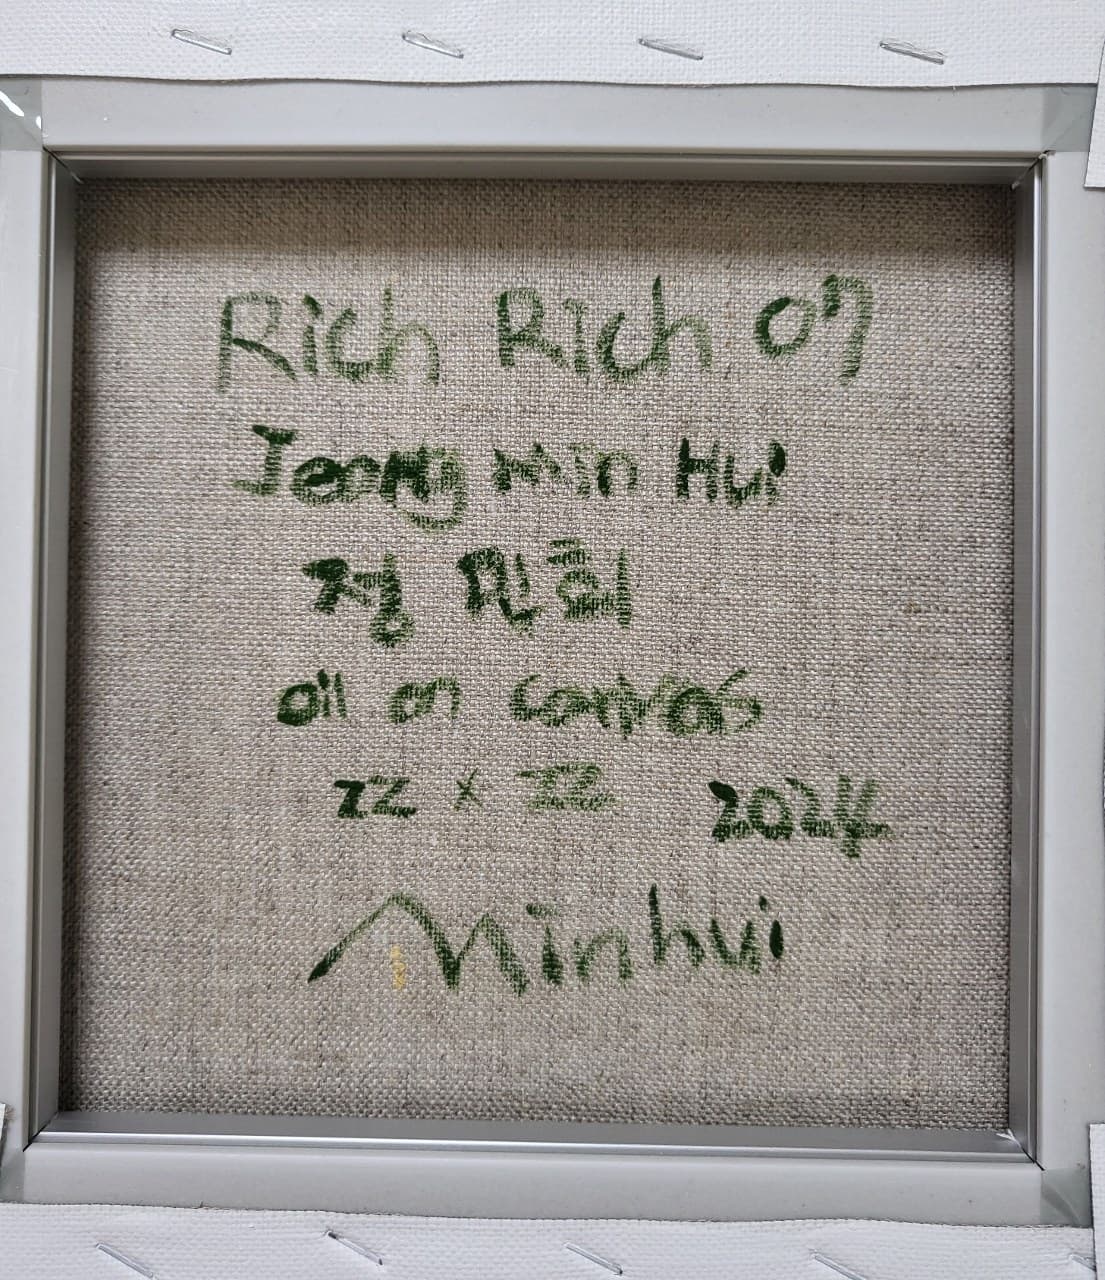 Rich Rich 07
Jeong Min Hui
정 민희
oil on canvas
22 x 22 2024
Minhui